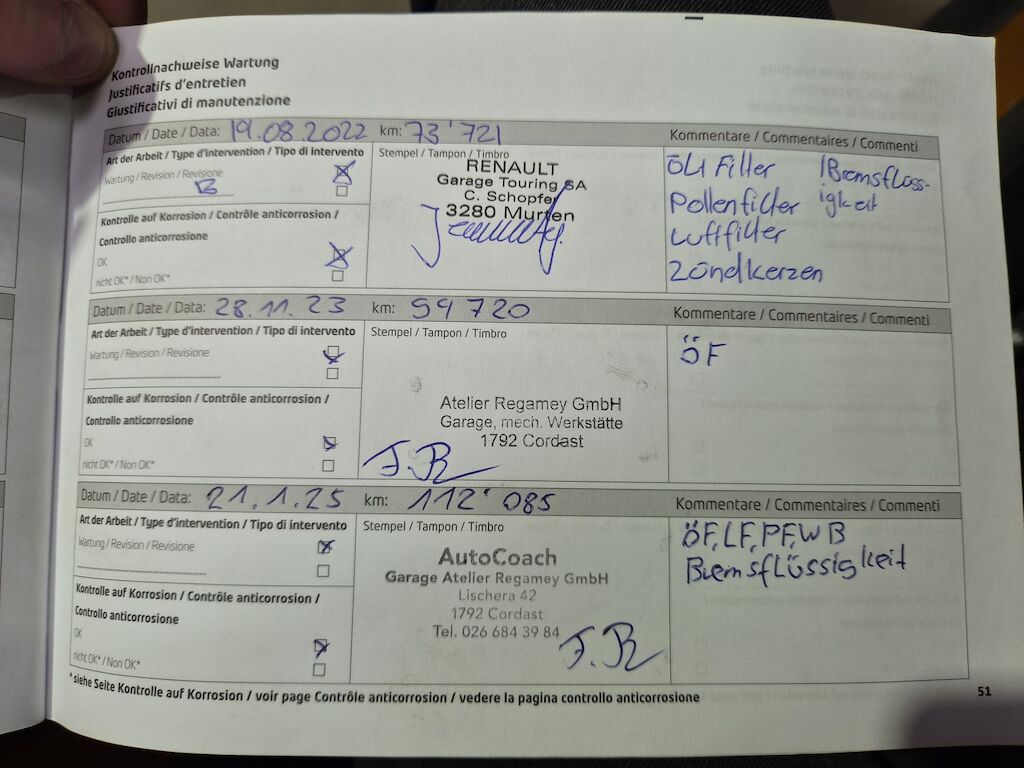 Kontrollnachweise Wartung
Justificatifs d'entretien
Giustificativi di manutenzione
Datum / Date / Data: 19.08.2022 km: 73'721
Kommentare / Commentaires / Commenti
Art der Arbeit / Type d'intervention / Tipo di intervento
Wartung / Revision / Revisione
B
Kontrolle auf Korrosion / Contrôle anticorrosion /
Controllo anticorrosione
OK
nicht OK* / Non OK*
Stempel / Tampon / Timbro
RENAULT
Garage Touring SA
C. Schopfer
3280 Murten
Öl+Filter
Pollenfilter
Luftfilter
Zündkerzen
Bremsflüss-
igkeit
Datum / Date / Data: 28.11.23 km: 99 720
Kommentare / Commentaires / Commenti
Art der Arbeit / Type d'intervention / Tipo di intervento
Wartung / Revision / Revisione
Kontrolle auf Korrosion / Contrôle anticorrosion /
Controllo anticorrosione
OK
nicht OK* / Non OK*
Stempel / Tampon / Timbro
Atelier Regamey GmbH
Garage, mech. Werkstätte
1792 Cordast
F.R
ÖF
Datum / Date / Data: 21.1.25 km: 112'085
Kommentare / Commentaires / Commenti
Art der Arbeit / Type d'intervention / Tipo di intervento
Wartung / Revision / Revisione
Kontrolle auf Korrosion / Contrôle anticorrosion /
Controllo anticorrosione
OK
nicht OK* / Non OK*
Stempel / Tampon / Timbro
AutoCoach
Garage Atelier Regamey GmbH
Lischera 42
1792 Cordast
Tel. 026 684 39 84
F.R
ÖF, LF, PF, WB
Bremsflüssigkeit
* siehe Seite Kontrolle auf Korrosion / voir page Contrôle anticorrosion / vedere la pagina controllo anticorrosione
51